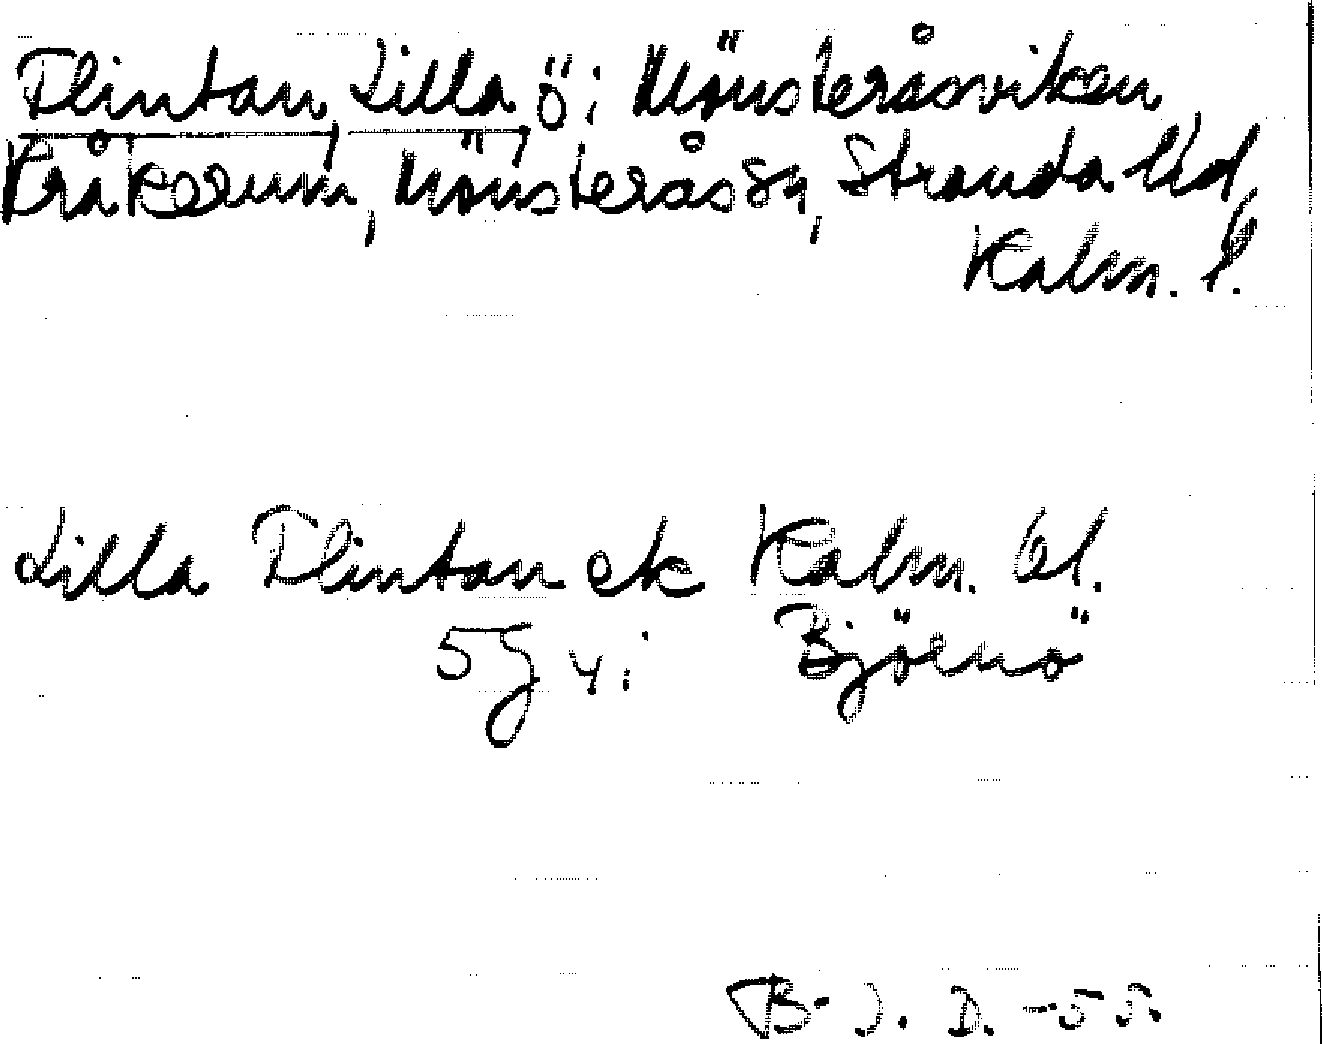 Flintan, Lilla, ö i Mönsteråsviken
Kråkerum, Mönsterås sn, Stranda hd,
Kalm. l.
Lilla Flintan ek Kalm. l.
5G 4 i Björnö
B. J. D. -55.